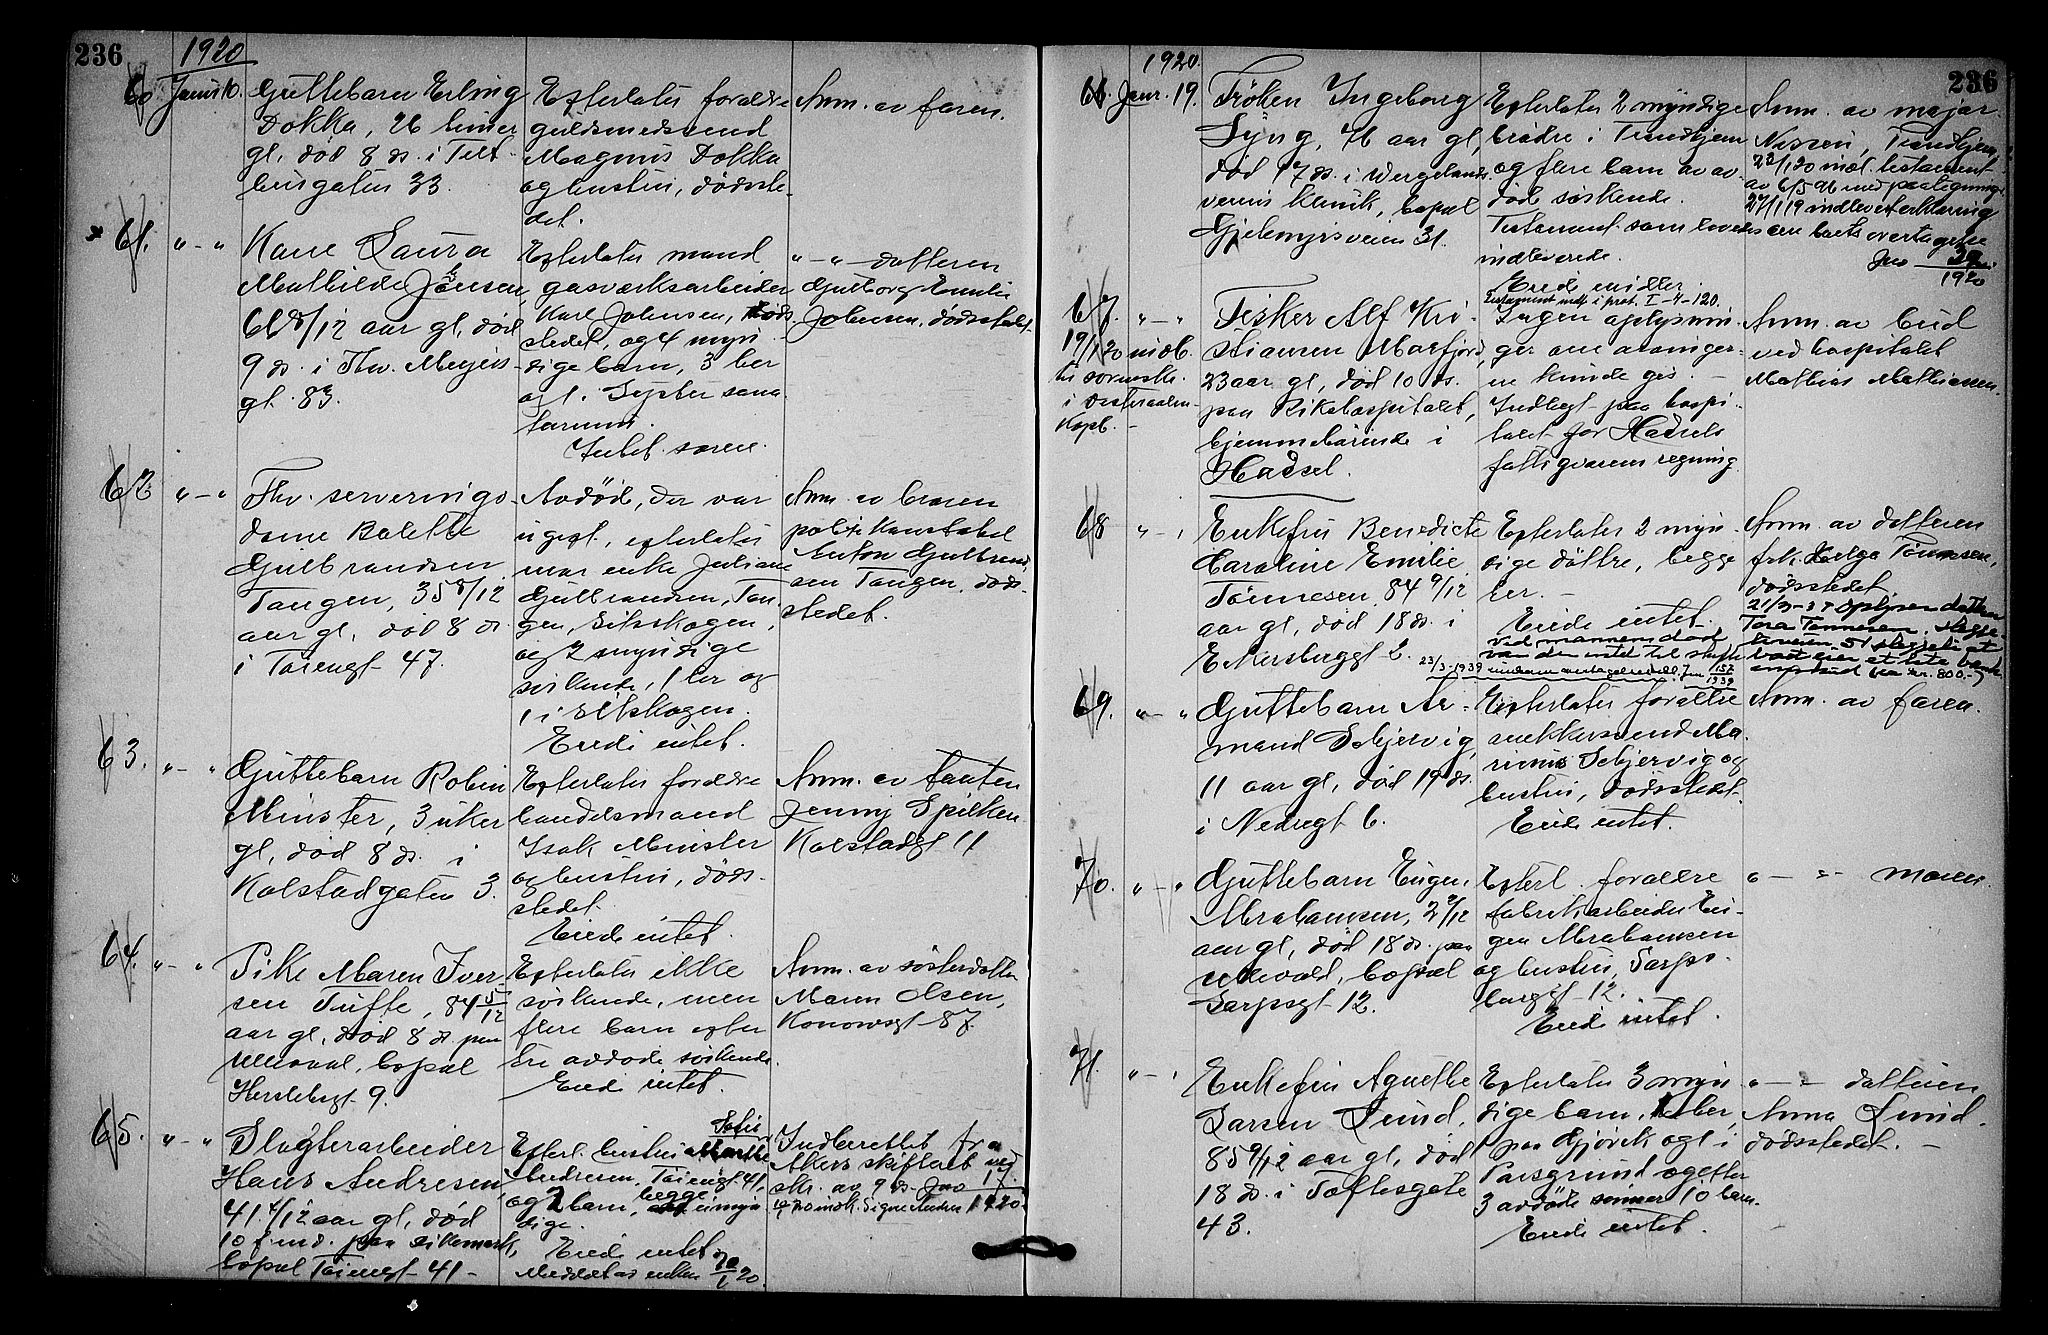 236
1920
60 Januar 10. Guttebarn Erling
Dokka, 26 timer
gl. død 8 ds. i Telt-
husgaten 33.
Efterlater forældre
guldsmedsvend
Magnus Dokka
og hustru, dødsste-
det.
Anm. av faren.
61. " - " Kone Laura
Mathilde Johnsen,
66 8/12 aar gl, død
9 ds. i Thv. Meyers-
gt. 83.
Efterlater mand
gasværksarbeider
Karl Johnsen, døds-
stedet, og 4 myn-
dige barn, 3 her
og 1 i Lyster sana-
torium.
Intet særeie.
" - " datteren
Gudborg Emilie
Johnsen, dødsstedet.
62 " - " Fhv. serverings-
dame Bolette
Gulbrandsen
Tangen, 35 8/12
aar gl, død 8 ds.
i Tøiengt 47.
Avdød, der var
ugift, efterlater
mor enke Juliane
Gulbrandsen, Tan-
gen, Eidskogen,
og 2 myndige
søskende, 1 her og
1 i Eidskogen.
Eiede intet.
Anm. av broren
politikonstabel
Anton Gulbrand-
sen Tangen, døds-
stedet.
63. " - " Guttebarn Robin
Minster, 3 uker
gl, død 8 ds. i
Kolstadgaten 3.
Efterlater forældre
handelsmand
Isak Minster
og hustru, døds-
stedet.
Eiede intet.
Anm. av tanten
Jenny Spilken
Kolstadgt 11
64. " - " Pike Maren Iver-
sen Tufte, 84 5/12
aar gl, død 8 ds. paa
Ullevaal, bopæl
Herslebsgt 9.
Efterlater ikke
søskende, men
flere barn efter
tre avdøde søskende.
Eied intet.
Anm. av søsterdatter
Maren Olsen,
Konowsgt 87.
65. " - " Slagterarbeider
Hans Andresen
41 4/12 aar gl, død
10 f.md. paa Dikemark,
bopæl Tøiengt 41 -
Efterl. hustru Marthe
Sofie
Andresen, Tøiengt 41,
og 2 barn, begge umyn-
dige.
Eiede intet.
Meddelt av enken 20/1 20.
Indberettet fra
Akers skifteret ved
skr. av 9 ds. Jno 17/1920.
236
1920.
66. Janr. 19. Frøken Ingeborg
Lyng, 76 aar gl,
død 17 ds. i Wergelands-
veiens klinik, bopæl
Gjelmyrsveien 31.
Efterlater 2 myndige
brødre i Trondhjem
og flere barn av av-
død søskende.
Testament som loves
indleverede.
Eiede midler.
Testament indt. i prot. I-4-120.
Anm. av major
Nissen, Trondhjem,
22/1 20 indl. testament
av 6/5 96 med paategning
27/1 19 indlevert erklæring
om boets overtagelse
Jno 1920
67. " - " Fisker Alf Kri-
stiansen Marfjord,
23 aar gl, død 10 ds.
paa Rikshospitalet,
hjemmehørende i
Hadsel.
19/1 20 indb.
til sorenskr.
i Vesteraalen
Ingen oplysnin-
ger om arvinger-
ne kunde gis. -
Indlagt paa hospi-
talet for Hadsels
fattigvæsens regning.
Anm. av bud
ved hospitalet
Mathias Mathiassen.
68 " - " Enkefru Benedicte
Caroline Emilie
Tönnesen, 84 9/12
aar gl, død 18 ds. i
Ekersberggt 6.
Efterlater 2 myn-
dige døttre, begge
her. -
Eiede intet.
Ved mannens død
var der intet til skifte
23/3-1939
Jno 152/1939
Anm. av datteren
frk. Helga Tönnesen,
dødsstedet
21/3-39 oplyser datteren
Tora Tønnesen,
boet eier et lite bank-
innskud ca kr. 800.-
69. " - " Guttebarn Ar-
mand Schjervig,
11 aar gl, død 19 ds.
i Nedregt 6.
Efterlater forældre
snekkersvend Ma-
rius Schjervig og
hustru, dødsstedet.
Eiede intet.
Anm. av faren.
70. " - " Guttebarn Eugen
Abrahamsen, 2 2/12
aar gl, død 18 ds. paa
Ullevaal, bopæl
Sarpsgt 12.
Efterl. forældre
fabrikarbeider Eu-
gen Abrahamsen
og hustru, Sarps-
borggt 12.
Eiede intet.
" - " moren.
71. " - " Enkefru Agnethe
Larsen Lund,
85 9/12 aar gl, død
18 ds. i Toftesgate
43.
Efterlater 3 myn-
dige barn, 1 her,
paa Gjøvik og 1 i
Porsgrund og efter
3 avdøde sønner 10 barn.
Eiede intet.
" - " datteren
Anna Lund,
dødsstedet. -